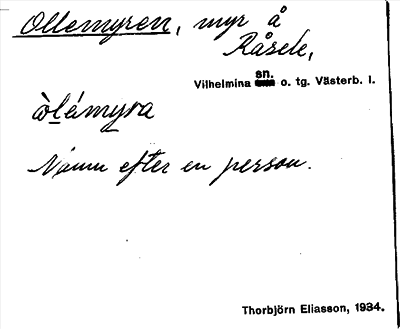 Ollemyren, myr å
Råsele,
sn.
Vilhelmina o. tg. Västerb. l.
òlémyra
Namn efter en person.
Thorbjörn Eliasson, 1934.